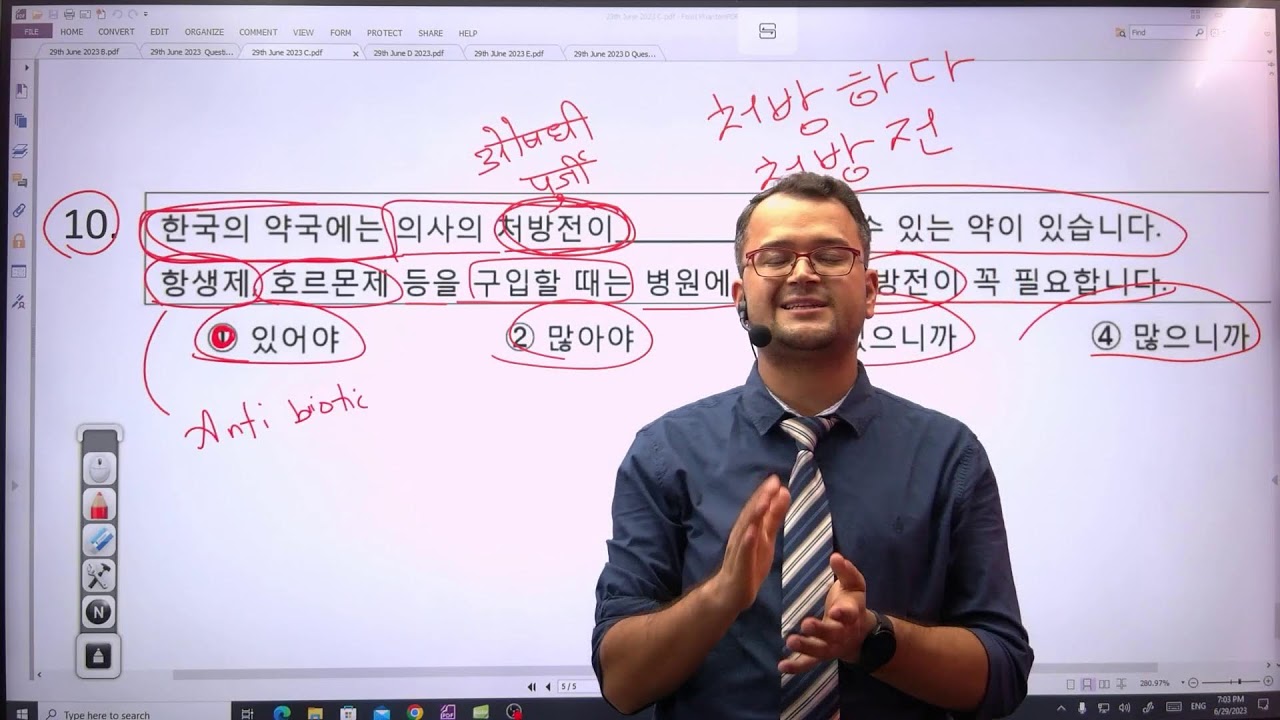 29th June 2023 C.pdf - Foxit PhantomPDF
FILE HOME CONVERT EDIT ORGANIZE COMMENT VIEW FORM PROTECT SHARE HELP
Find
29th June 2023 B.pdf 29th June 2023 Quest... 29th June 2023 C.pdf 29th June D 2023.pdf 29th June 2023 E.pdf 29th June 2023 D Ques...
처방하다
औषधी 처방전
पुर्जी
10. 한국의 약국에는 의사의 처방전이 수 있는 약이 있습니다.
항생제, 호르몬제 등을 구입할 때는 병원에 방전이 꼭 필요합니다.
① 있어야 ② 많아야 있으니까 ④ 많으니까
Anti biotic
N
5/5
280.97%
Type here to search
ENG
7:03 PM
6/29/2023